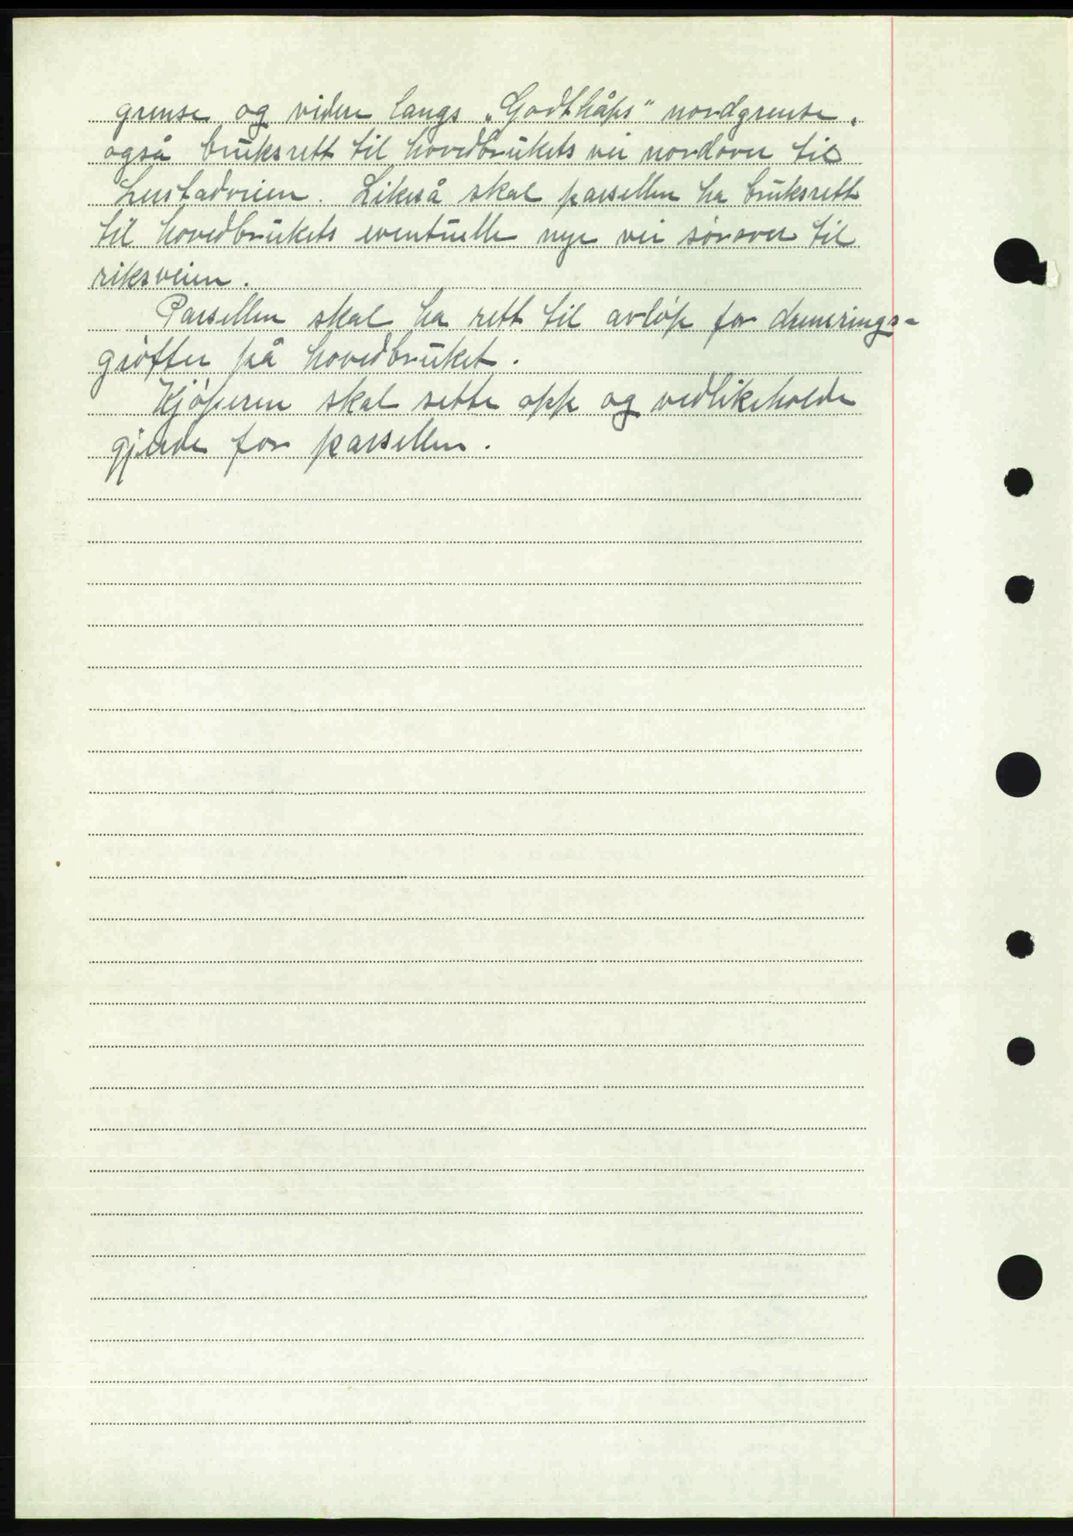 grense og videre langs „Godthåps" nordgrense.
også bruksrett til hovedbrukets vei nordover til
Lustadveien. Likeså skal parsellen ha bruksrett
til hovedbrukets eventuelle nye vei sørover til
riksveien.
Parsellen skal ha rett til avløp for drenerings-
grøfter på hovedbruket.
Kjøperen skal sette opp og vedlikeholde
gjerde for parsellen.